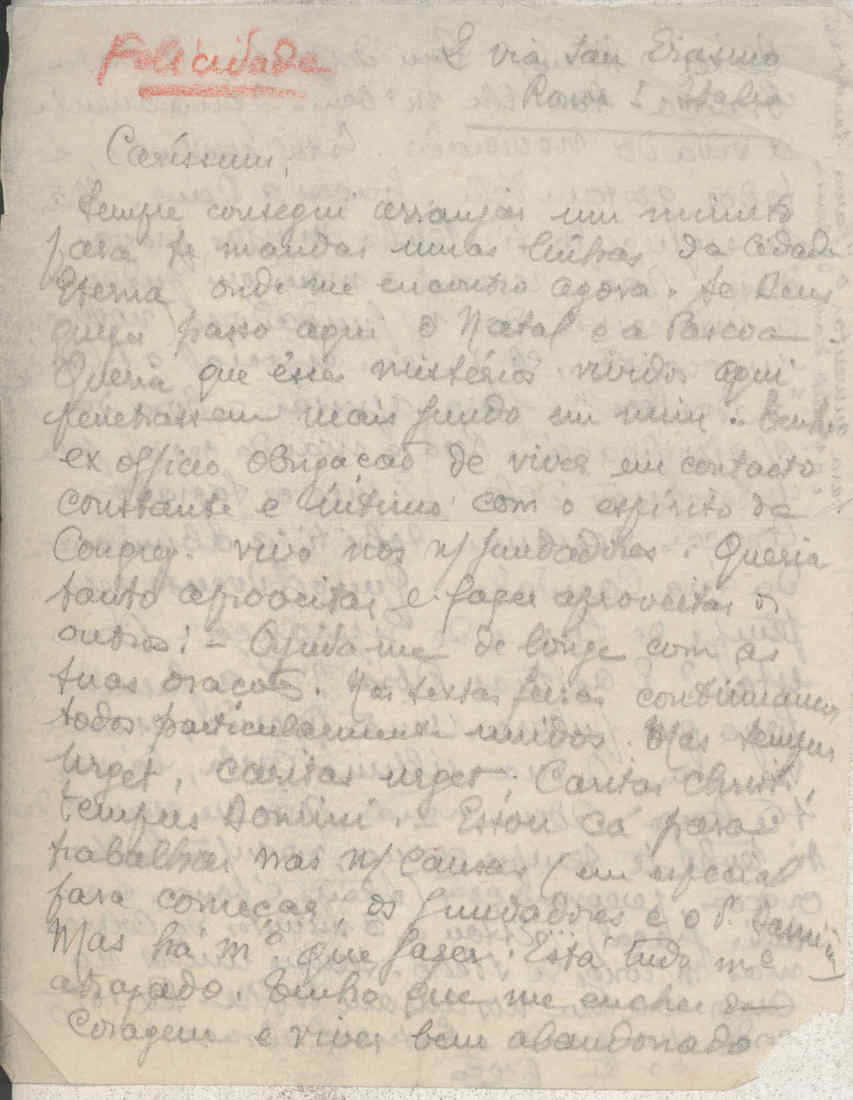 Felicidade
2 via San Erasmo
Roma Italia
Caríssimi,
Sempre consegui arranjar um minuto
para te mandar umas linhas da Cidade
Eterna onde me encontro agora. Se Deus
quizer passo aqui o Natal e a Pascoa.
Queria que esses mistérios vividos aqui
penetrassem mais fundo em mim. Tenho
ex officio obrigação de viver em contacto
constante e intimo com o espírito da
Congreg. vivo nos n/ fundadores. Queria
tanto aproveitar e fazer aproveitar os
outros! – Ajuda-me de longe com as
tuas orações. Nas sextas feiras continuamos
todos particularmente unidos. Mas tempus
urget, caritas urget; Caritas Christi,
tempus Domini. – Estou cá para
trabalhar nas n/ Causas (em especial
para começar, os fundadores e o P.
Mas há mº que fazer. Está tudo mº
atrazado. Tenho que me encher de
Coragem e viver bem abandonado